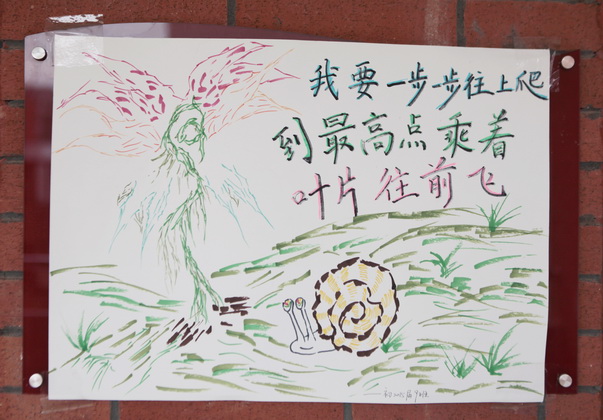 我要一步一步往上爬
到最高点乘着
叶片往前飞